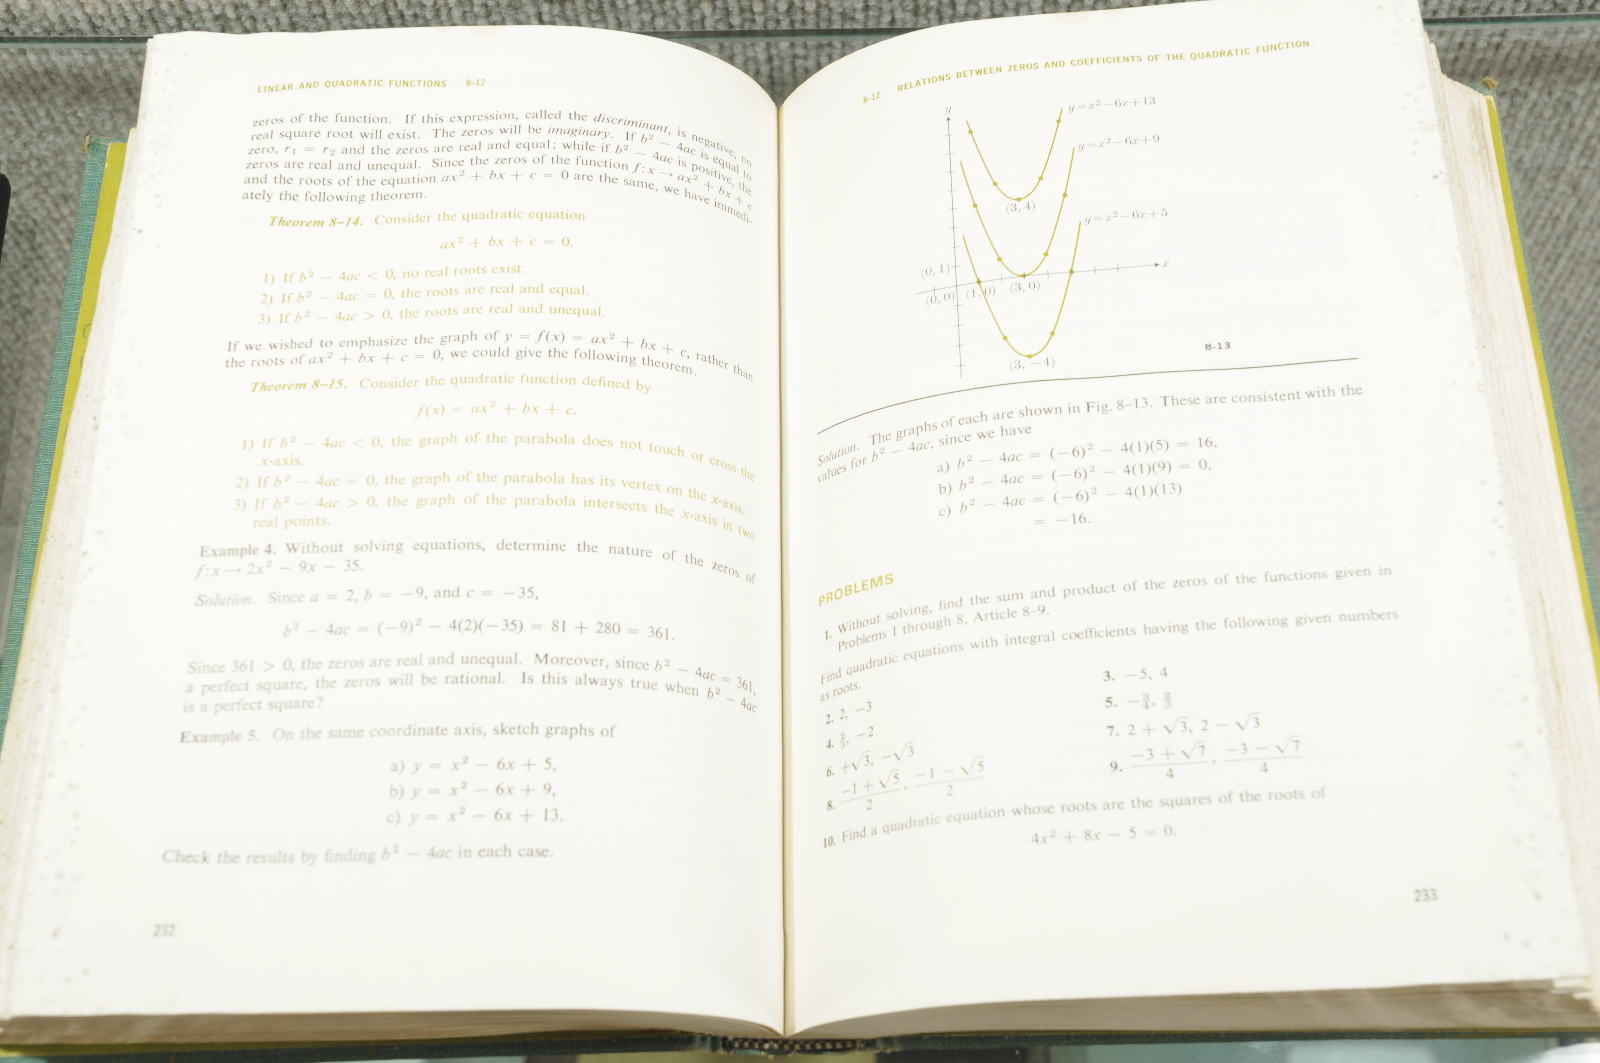 LINEAR AND QUADRATIC FUNCTIONS 8–12
zeros of the function. If this expression, called the discriminant, is negative, no
real square root will exist. The zeros will be imaginary. If b² − 4ac is equal to
zero, r₁ = r₂ and the zeros are real and equal; while if b² − 4ac is positive, the
zeros are real and unequal. Since the zeros of the function f: x → ax² + bx + c
and the roots of the equation ax² + bx + c = 0 are the same, we have immedi-
ately the following theorem.
Theorem 8–14. Consider the quadratic equation
ax² + bx + c = 0.
1) If b² − 4ac < 0, no real roots exist.
2) If b² − 4ac = 0, the roots are real and equal.
3) If b² − 4ac > 0, the roots are real and unequal.
If we wished to emphasize the graph of y = f(x) = ax² + bx + c, rather than
the roots of ax² + bx + c = 0, we could give the following theorem.
Theorem 8–15. Consider the quadratic function defined by
f(x) = ax² + bx + c.
1) If b² − 4ac < 0, the graph of the parabola does not touch or cross the
x-axis.
2) If b² − 4ac = 0, the graph of the parabola has its vertex on the x-axis.
3) If b² − 4ac > 0, the graph of the parabola intersects the x-axis in two
real points.
Example 4. Without solving equations, determine the nature of the zeros of
f: x → 2x² − 9x − 35.
Solution. Since a = 2, b = −9, and c = −35,
b² − 4ac = (−9)² − 4(2)(−35) = 81 + 280 = 361.
Since 361 > 0, the zeros are real and unequal. Moreover, since b² − 4ac = 361,
a perfect square, the zeros will be rational. Is this always true when b² − 4ac
is a perfect square?
Example 5. On the same coordinate axis, sketch graphs of
a) y = x² − 6x + 5,
b) y = x² − 6x + 9,
c) y = x² − 6x + 13.
Check the results by finding b² − 4ac in each case.
232
8–12 RELATIONS BETWEEN ZEROS AND COEFFICIENTS OF THE QUADRATIC FUNCTION
y
y = x² − 6x + 13
y = x² − 6x + 9
(3, 4)
y = x² − 6x + 5
(0, 1)
x
(0, 0) (1, 0) (3, 0)
(3, −4)
8–13
Solution. The graphs of each are shown in Fig. 8–13. These are consistent with the
values for b² − 4ac, since we have
a) b² − 4ac = (−6)² − 4(1)(5) = 16,
b) b² − 4ac = (−6)² − 4(1)(9) = 0,
c) b² − 4ac = (−6)² − 4(1)(13)
= −16.
PROBLEMS
1. Without solving, find the sum and product of the zeros of the functions given in
Problems 1 through 8, Article 8–9.
Find quadratic equations with integral coefficients having the following given numbers
as roots.
2. 2, −3
3. −5, 4
4. −2
5.
6. +√3, −√3
7. 2 + √3, 2 − √3
8. (−1 + √5)/2, (−1 − √5)/2
9. (−3 + √7)/4, (−3 − √7)/4
10. Find a quadratic equation whose roots are the squares of the roots of
4x² + 8x − 5 = 0.
233